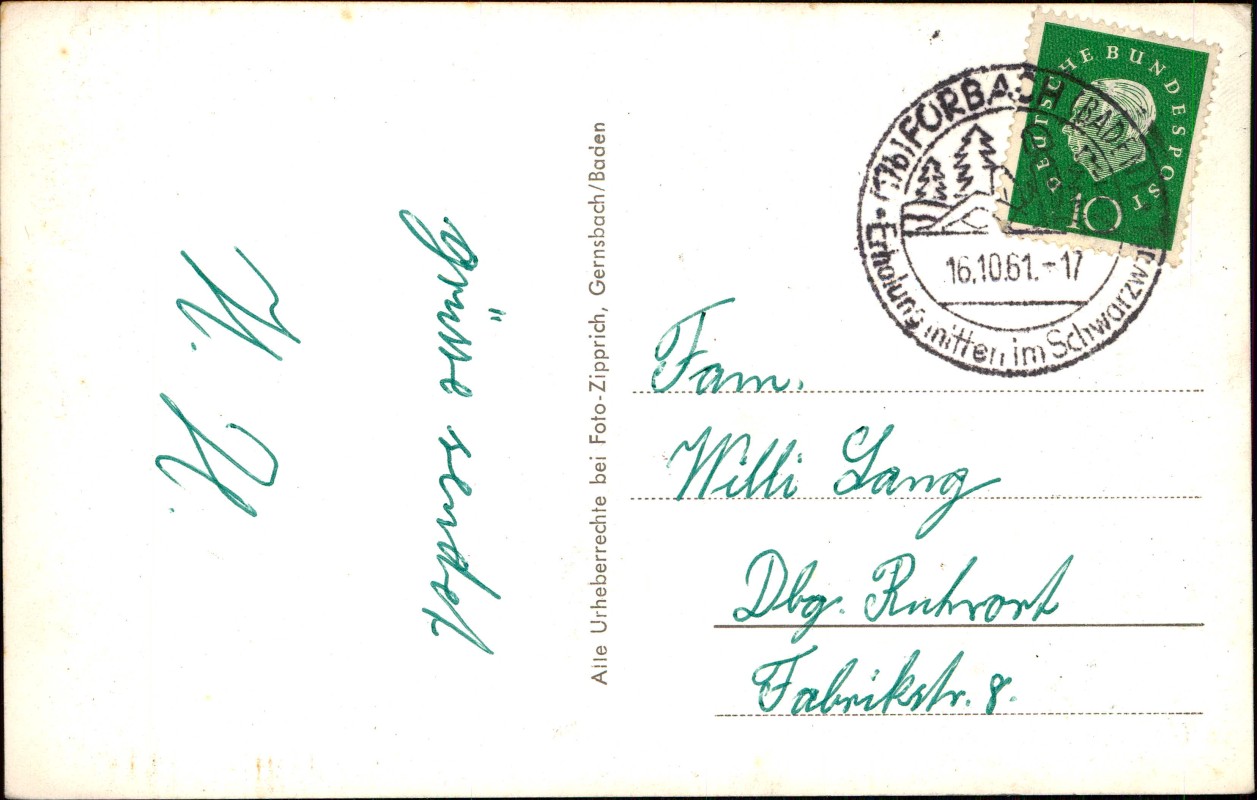 Grüsse sendet
W. K.
Alle Urheberrechte bei Foto-Zipprich, Gernsbach/Baden
DEUTSCHE BUNDESPOST
10
(17b) FORBACH (BADEN)
16.10.61.-17
Erholung mitten im Schwarzw
Fam.
Willi Lang
Dbg. Ruhrort
Fabrikstr. 8.